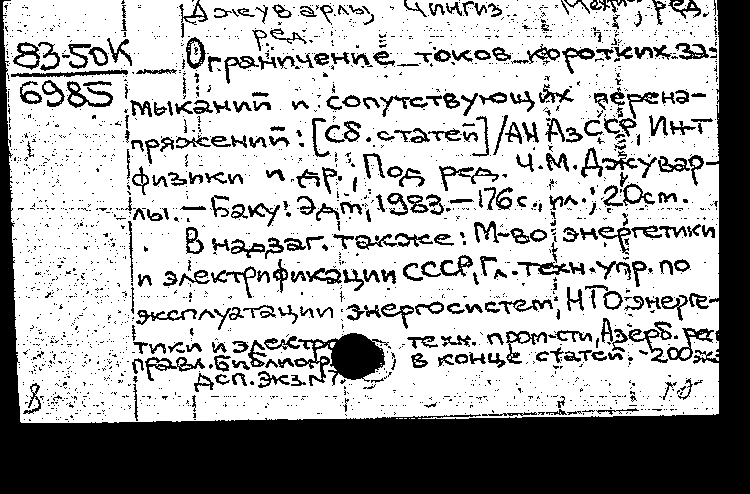 Джуварлы, Чингиз Мехти, ред.
ред.
83-50К
6985
Ограничение токов коротких за-
мыканий и сопутствующих перена-
пряжений: [Сб. статей]/АН АзССР, Ин-т
физики и др.; Под ред. Ч.М. Джувар-
лы. — Баку: Элм, 1983. — 176 с., ил.; 20 см.
В надзаг. также: М-во энергетики
и электрификации СССР, Гл. техн. упр. по
эксплуатации энергосистем, НТО энерге-
тики и электро техн. пром-сти, Азерб. респ
правл. Библиогр. в конце статей. - 200 экз
ДСП. Экз. №7.
8